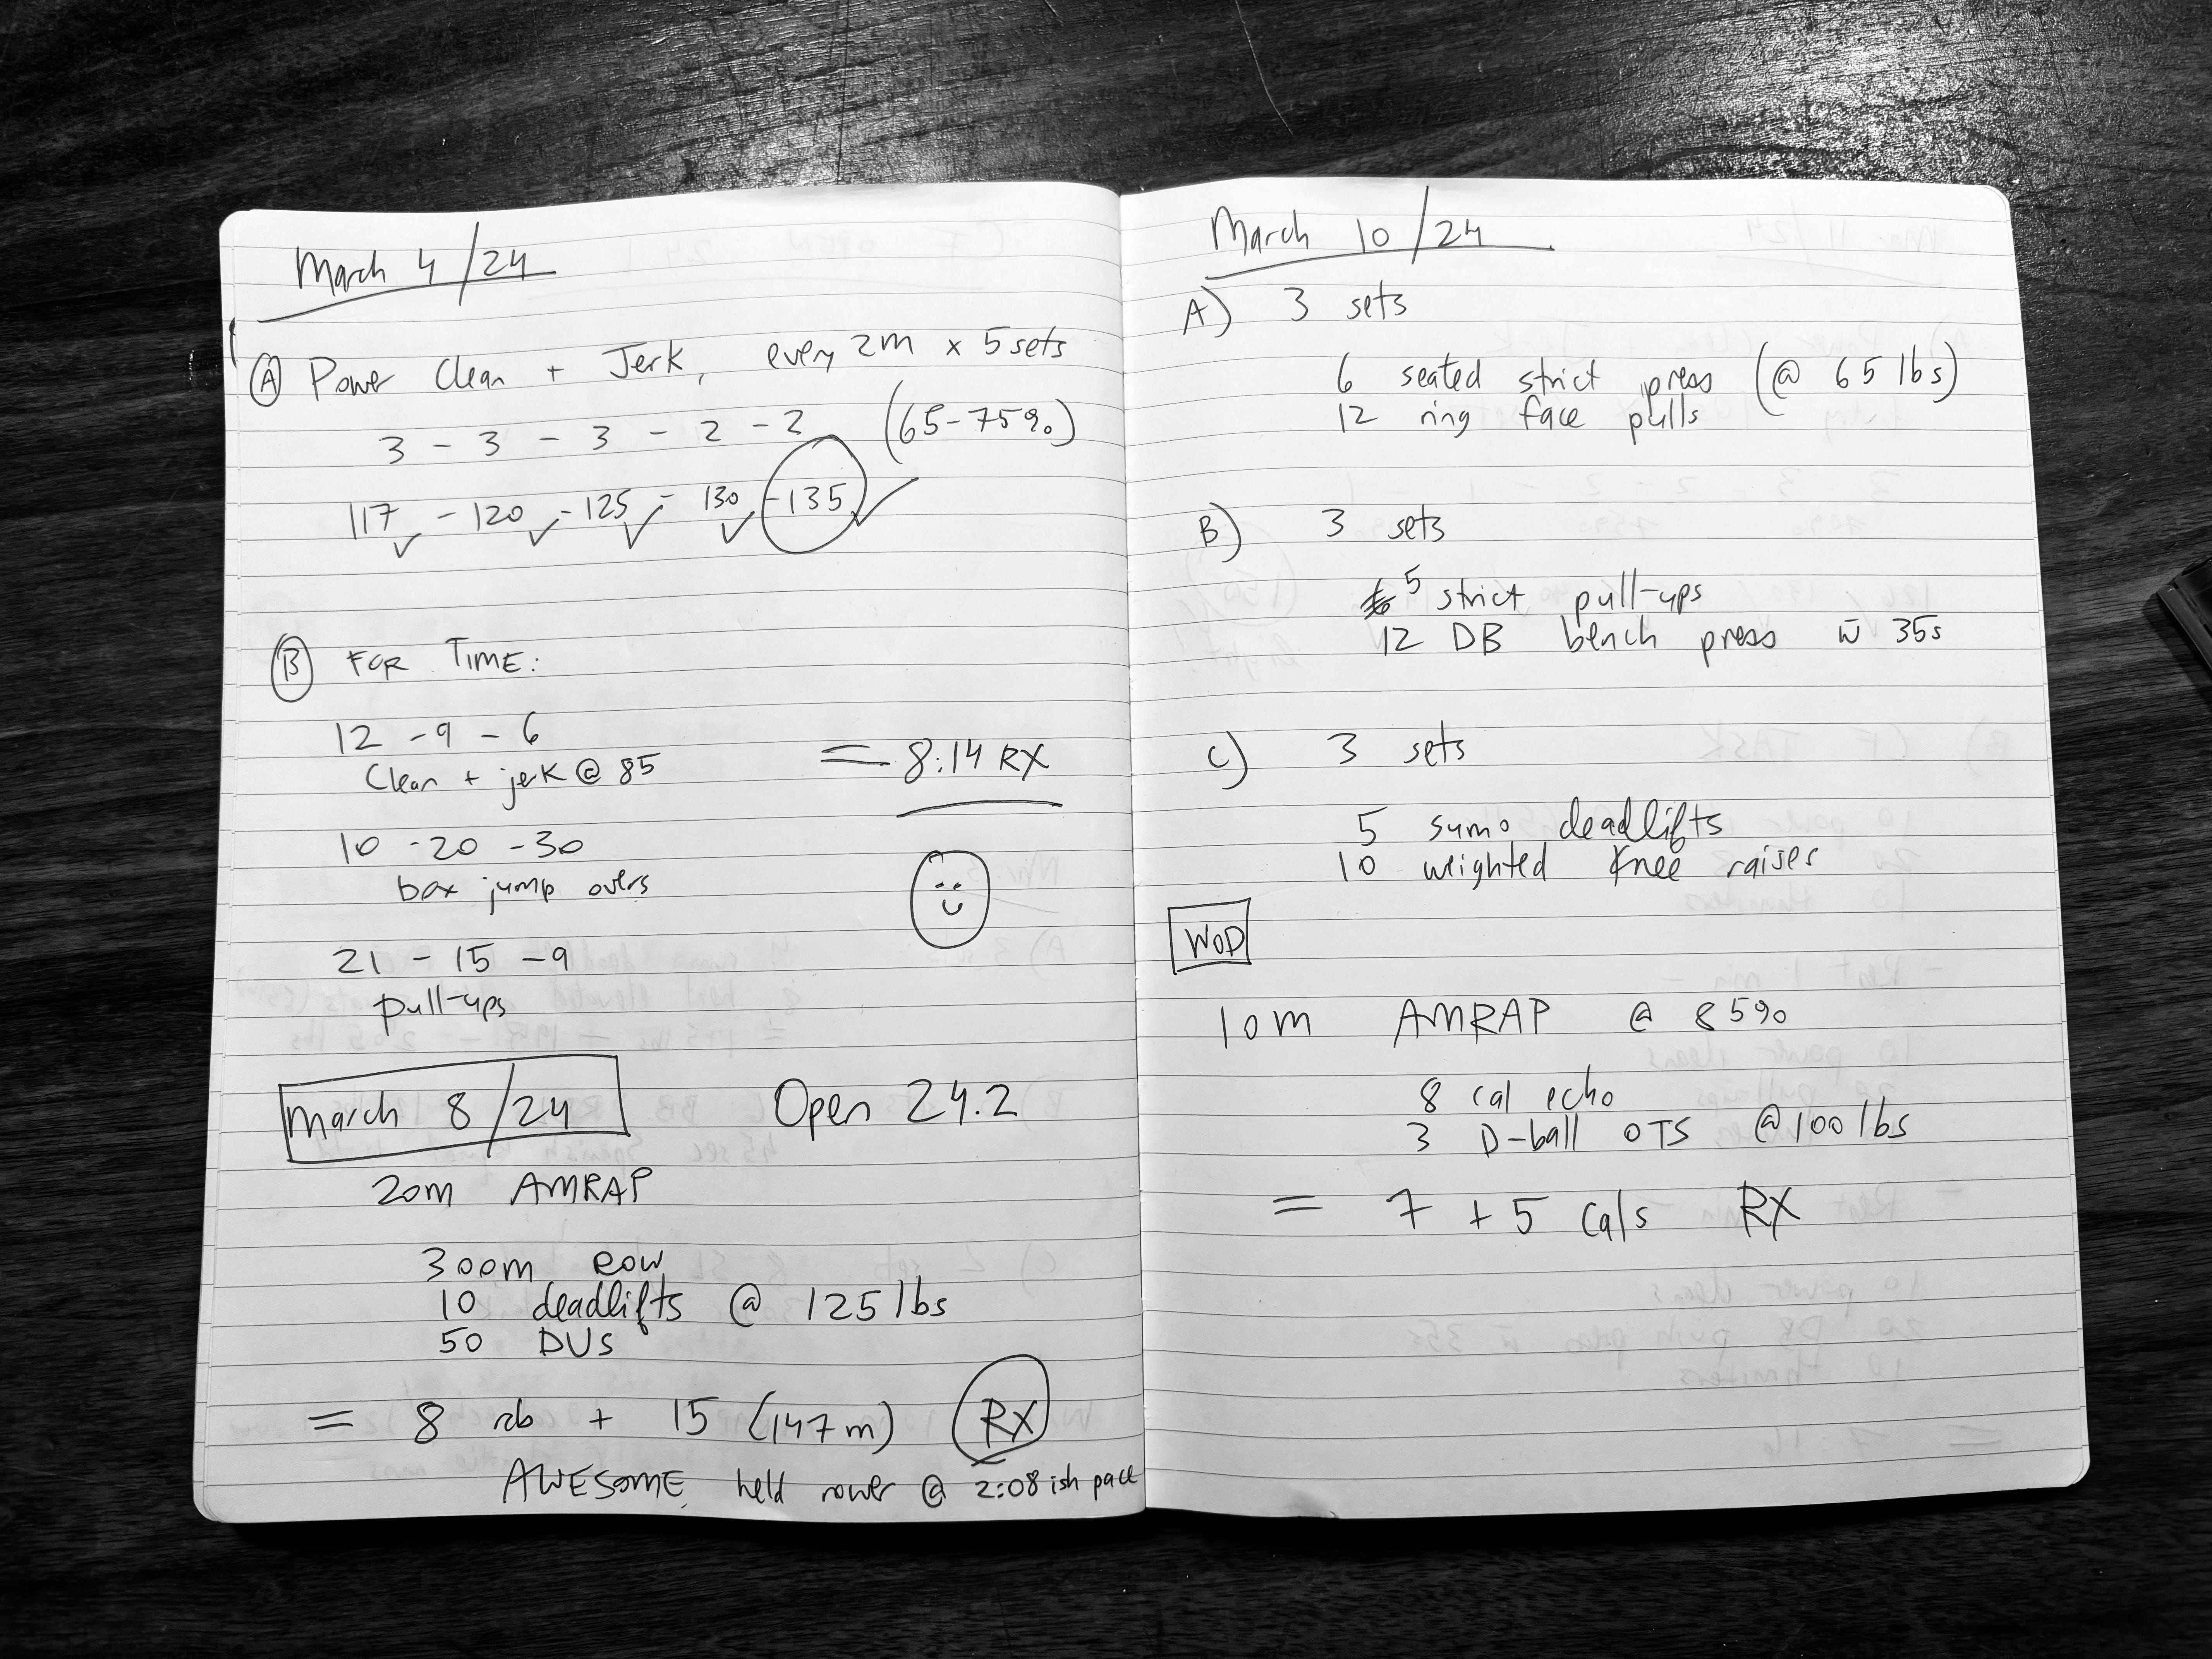 March 4/24
A Power Clean + Jerk, every 2m x 5 sets
3 - 3 - 3 - 2 - 2 (65-75%)
117 - 120 - 125 - 130 - 135
B FOR TIME:
12 - 9 - 6
Clean + jerk @ 85
= 8:14 RX
10 - 20 - 30
box jump overs
21 - 15 - 9
pull-ups
March 8/24 Open 24.2
20m AMRAP
300m Row
10 deadlifts @ 125 lbs
50 DUs
= 8 rds + 15 (147m) RX
AWESOME, held rower @ 2:08 ish pace
March 10/24
A) 3 sets
6 seated strict press (@ 65 lbs)
12 ring face pulls
B) 3 sets
5 strict pull-ups
12 DB bench press w 35s
C) 3 sets
5 sumo deadlifts
10 weighted knee raises
WOD
10m AMRAP @ 85%
8 cal echo
3 D-ball OTS @ 100 lbs
= 7 + 5 cals RX